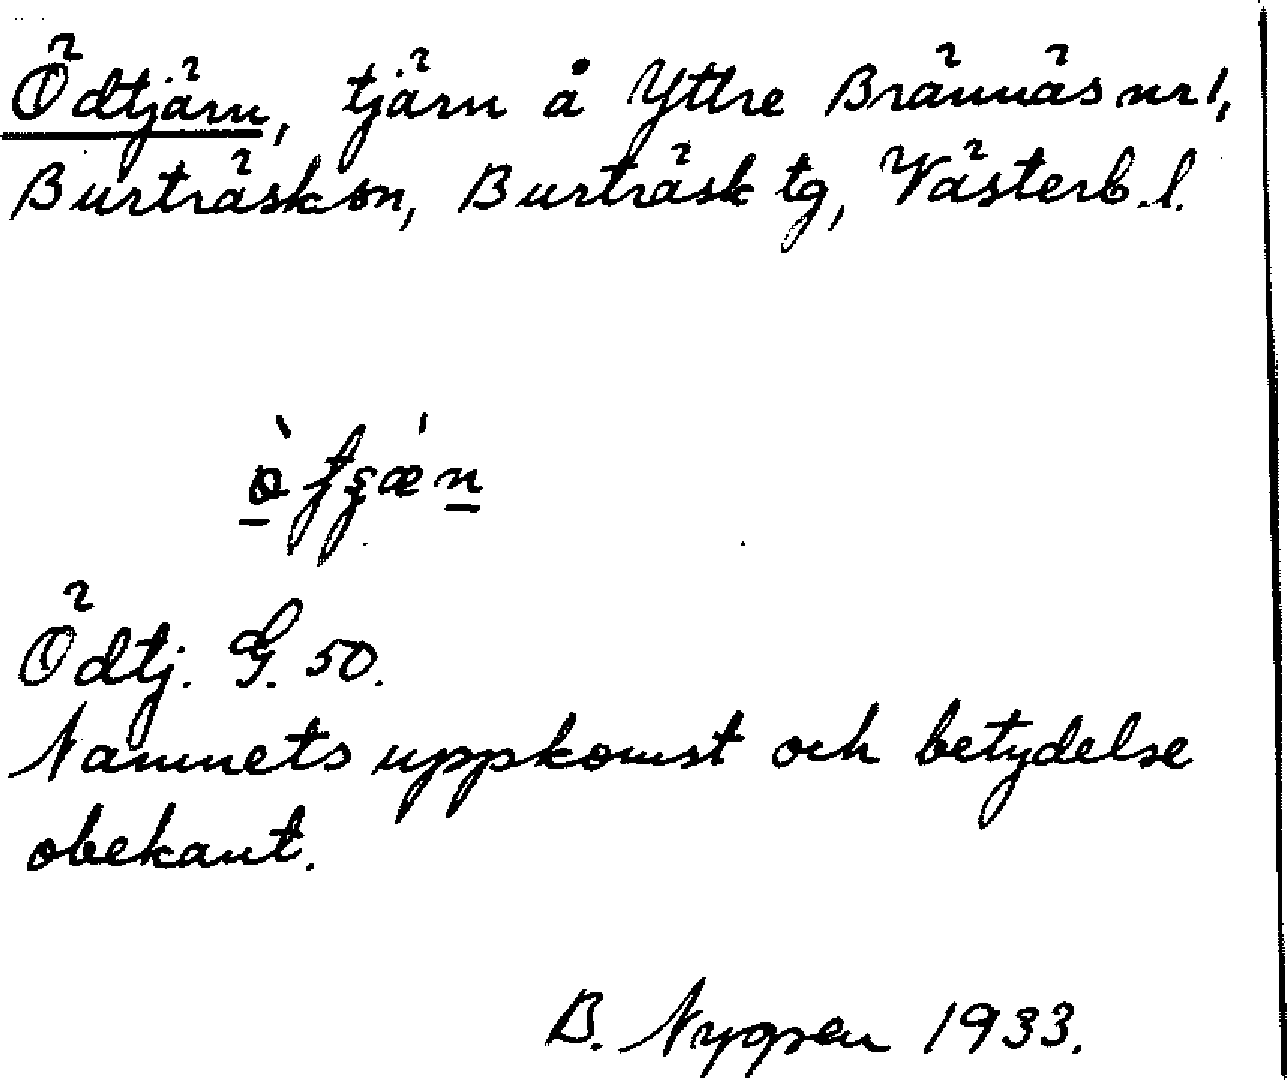 Ödtjärn, tjärn å Yttre Brännäs nr 1,
Burträsk sn, Burträsk tg, Västerb. l.
Ödtj. G. 50.
Namnets uppkomst och betydelse
obekant.
B. Nygren 1933.